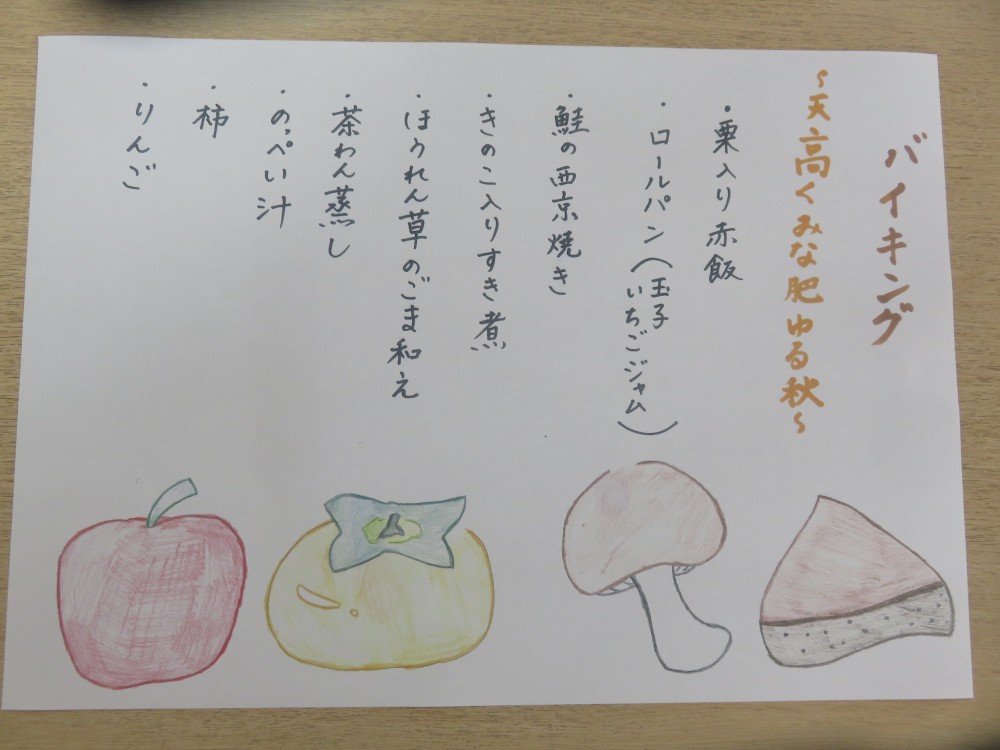 バイキング
〜天高くみな肥ゆる秋〜
・栗入り赤飯
・ロールパン(玉子
いちごジャム)
・鮭の西京焼き
・きのこ入りすき煮
・ほうれん草のごま和え
・茶わん蒸し
・のっぺい汁
・柿
・りんご